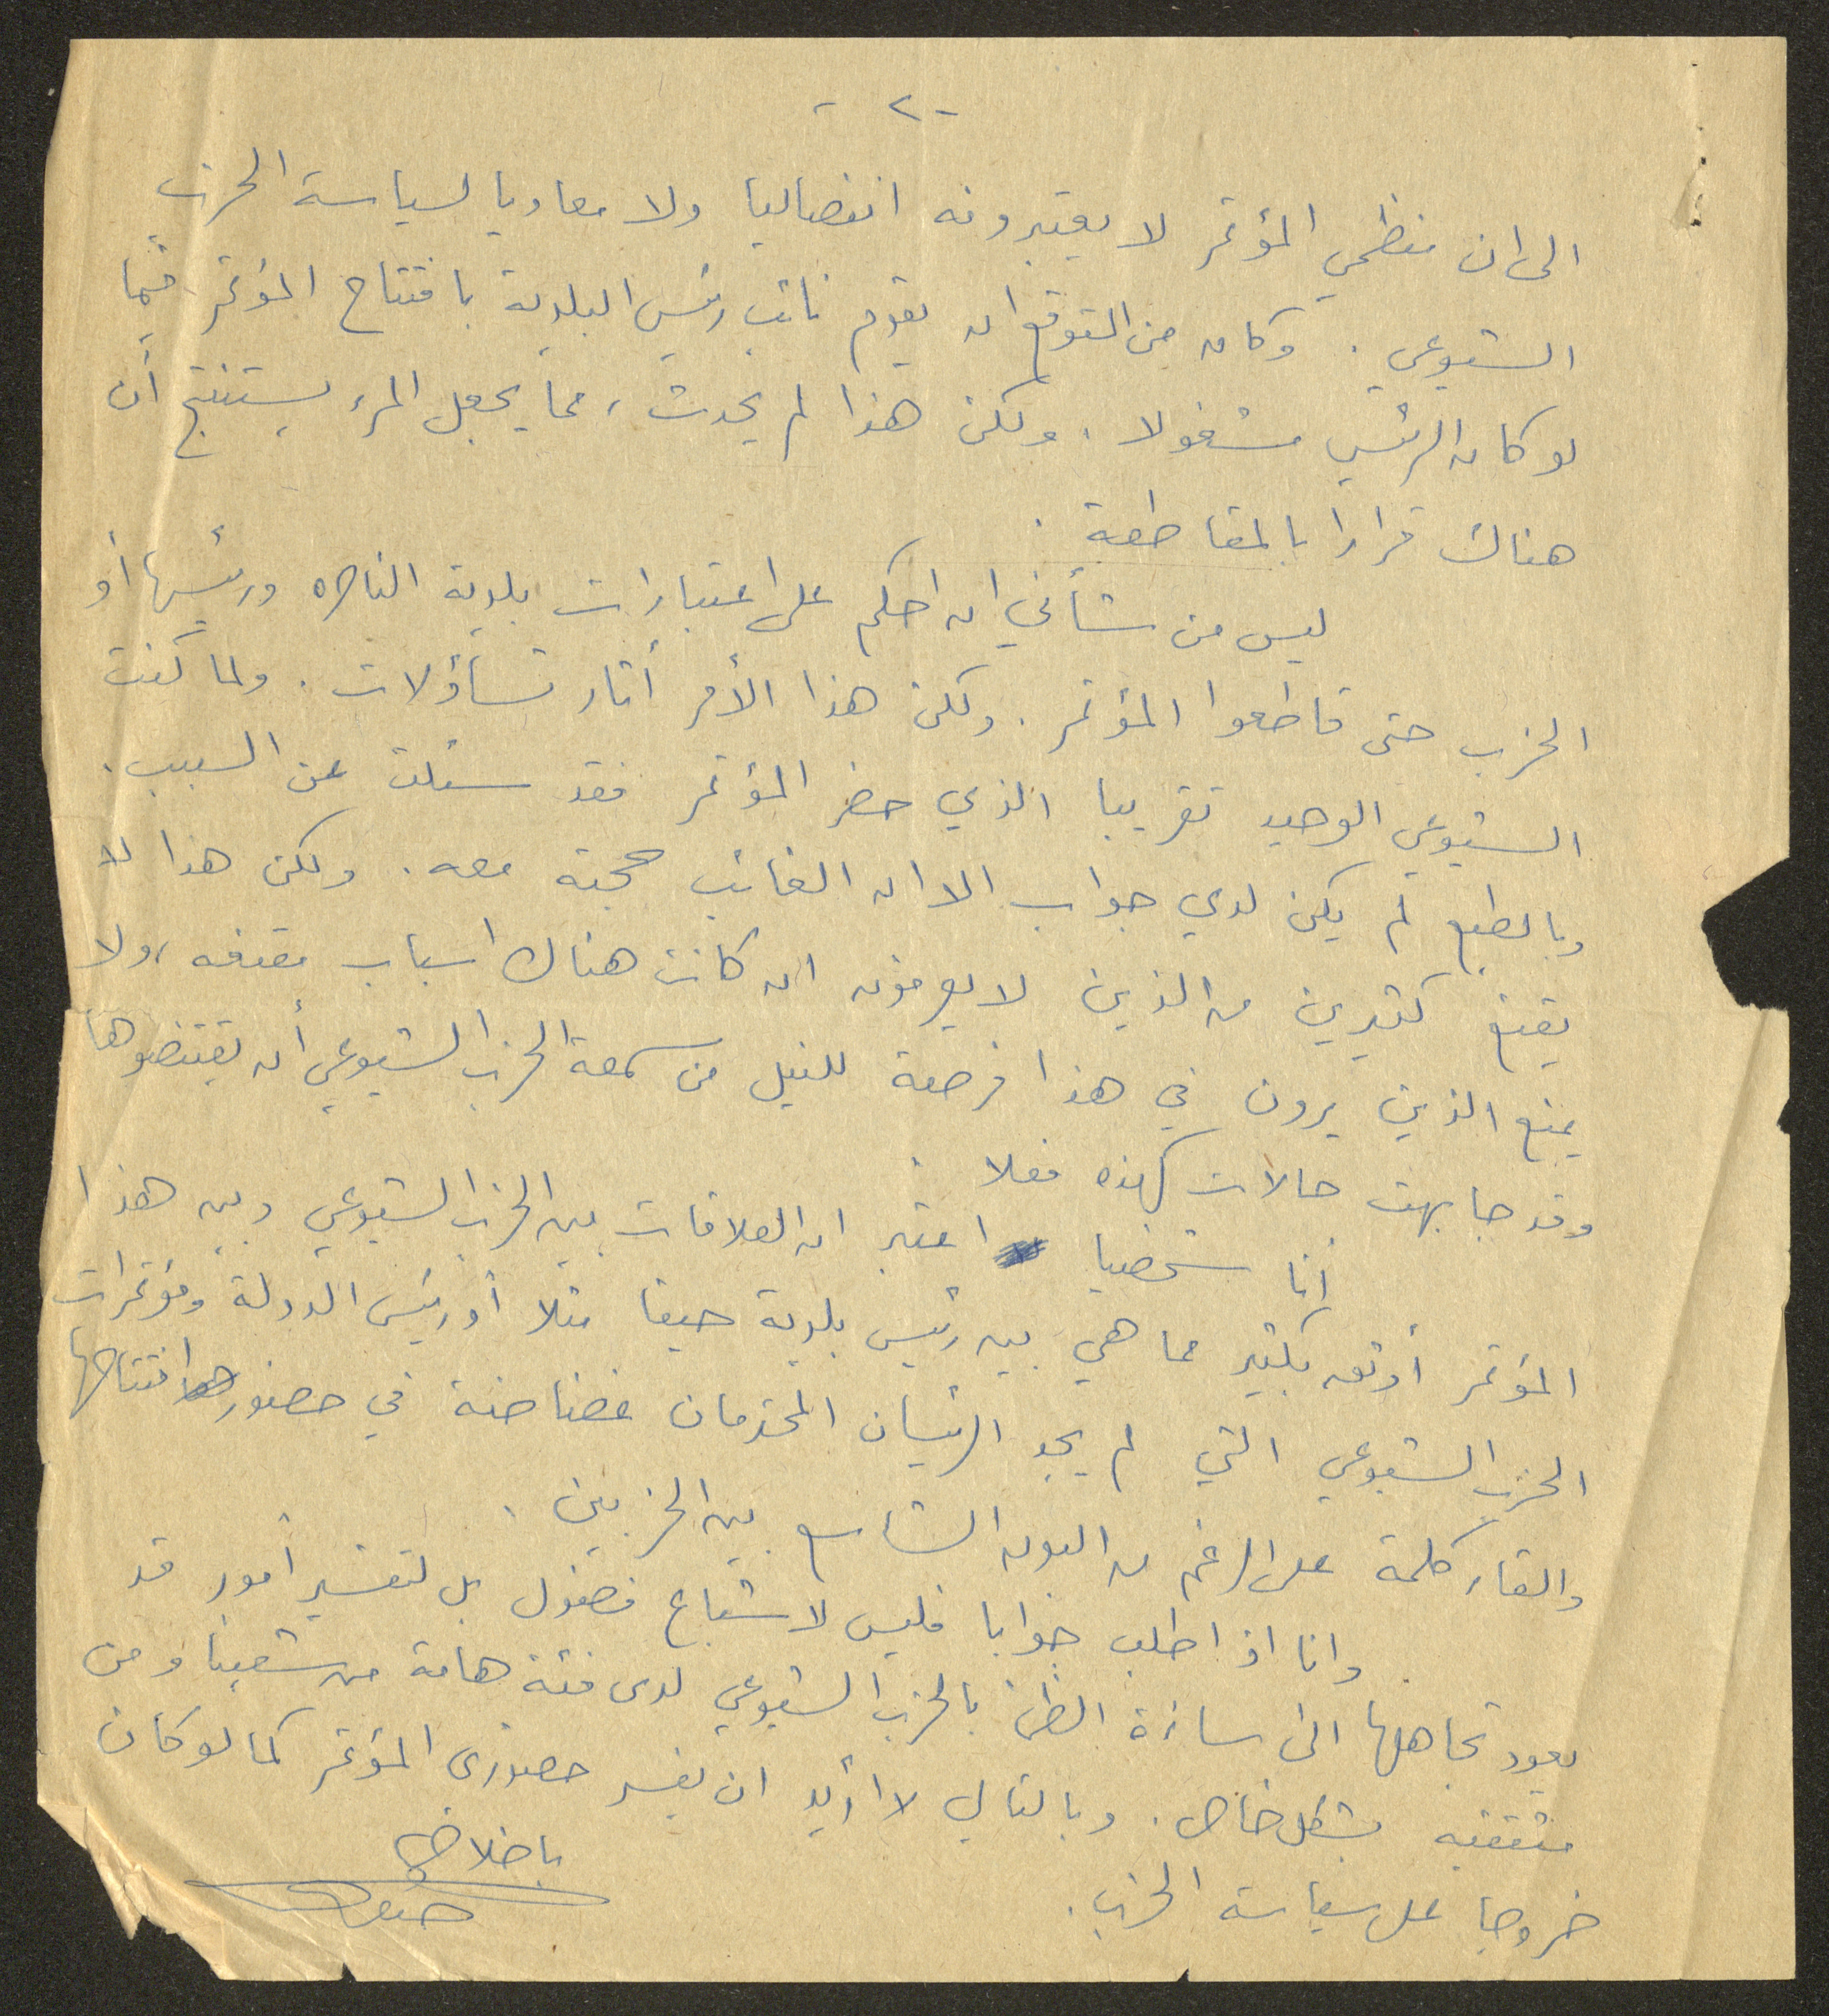 - ٢ -
الى ان منظمي المؤتمر لا يعتبرونه انفصاليا ولا معاديا لسياسة الحزب
الشيوعي . وكان من المتوقع ان يقوم نائب رئيس البلدية بافتتاح المؤتمر فيما
لو كان الرئيس مشغولا . ولكن هذا لم يحدث ، مما يجعل المرء يستنتج أن
هناك قرارا بالمقاطعة .
ليس من شأني ان احكم على اعتبارات بلدية الناصره ورئيسها أو
الحزب حتى قاطعوا المؤتمر . ولكن هذا الأمر أثار تساؤلات . ولما كنت
الشيوعي الوحيد تقريبا الذي حضر المؤتمر فقد سئلت عن السبب .
وبالطبع لم يكن لدي جواب الا ان الغائب حجته معه . ولكن هذا لا
يقنع كثيرين من الذين لا يعرفون ان كانت هناك اسباب مقنعه ، ولا
يمنع الذين يرون في هذا فرصة للنيل من سمعة الحزب الشيوعي أن يقتنصوها
وقد جابهت حالات كهذه فعلا .
أنا شخصيا اعتبر ان العلاقات بين الحزب الشيوعي وبين هذا
المؤتمر أوثق بكثير مما هي بين رئيس بلدية حيفا مثلا أو رئيس الدولة ومؤتمرات
الحزب الشيوعي التي لم يجد الرئيسان المحترمان غضاضة في حضور افتتاحها
والقاء كلمة على الرغم من البون الشاسع بين الحزبين .
وانا اذ اطلب جوابا فليس لاشباع فضول بل لتفسير أمور قد
يعود تجاهلها الى ساءة الظن بالحزب الشيوعي لدى فئة هامة من شعبنا ومن
مثقفيه بشكل خاص . وبالتالي لا أريد ان يفسر حضوري المؤتمر كما لو كان
خروجا على سياسة الحزب .
باخلاص